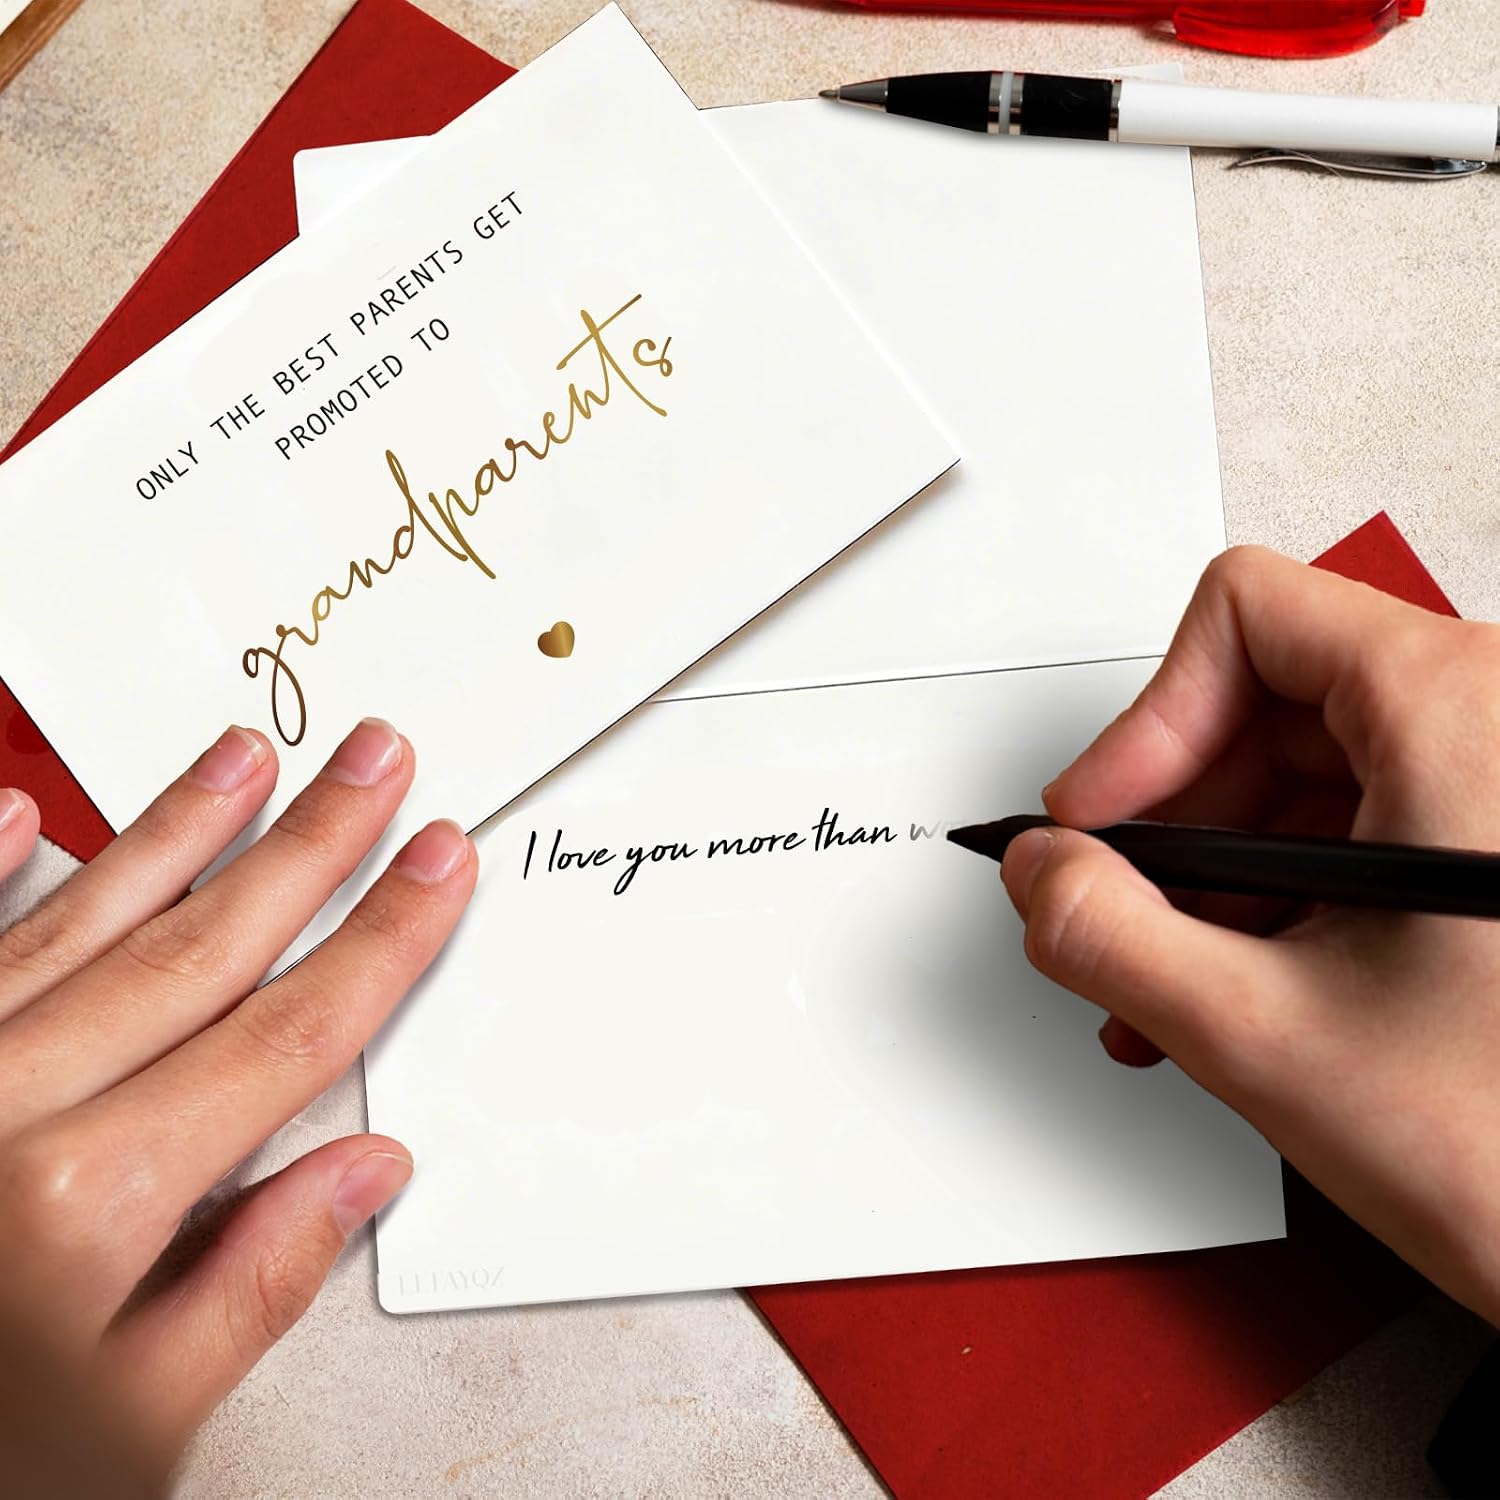 ONLY THE BEST PARENTS GET
PROMOTED TO
grandparents
I love you more than